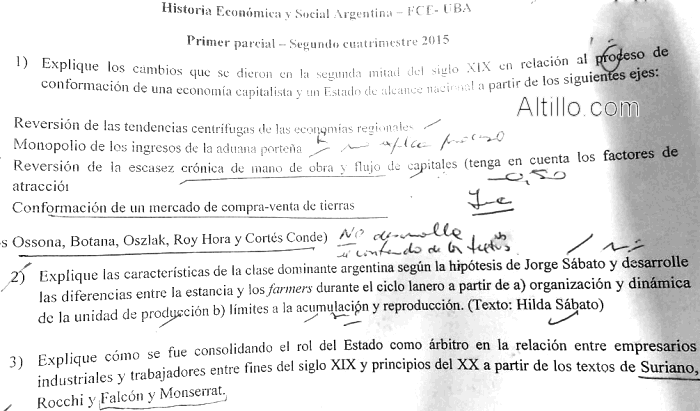 Historia Económica y Social Argentina – FCE- UBA
Primer parcial – Segundo cuatrimestre 2015
1) Explique los cambios que se dieron en la segunda mitad del siglo XIX en relación al proceso de
conformación de una economía capitalista y un Estado de alcance nacional a partir de los siguientes ejes:
Altillo.com
Reversión de las tendencias centrífugas de las economías regionales
Monopolio de los ingresos de la aduana porteña
Reversión de la escasez crónica de mano de obra y flujo de capitales (tenga en cuenta los factores de
atracción
-0,50
Conformación de un mercado de compra-venta de tierras
s Ossona, Botana, Oszlak, Roy Hora y Cortés Conde) No desarrolla
contenido de los textos
2) Explique las características de la clase dominante argentina según la hipótesis de Jorge Sábato y desarrolle
las diferencias entre la estancia y los farmers durante el ciclo lanero a partir de a) organización y dinámica
de la unidad de producción b) límites a la acumulación y reproducción. (Texto: Hilda Sábato)
3) Explique cómo se fue consolidando el rol del Estado como árbitro en la relación entre empresarios
industriales y trabajadores entre fines del siglo XIX y principios del XX a partir de los textos de Suriano,
Rocchi y Falcón y Monserrat.